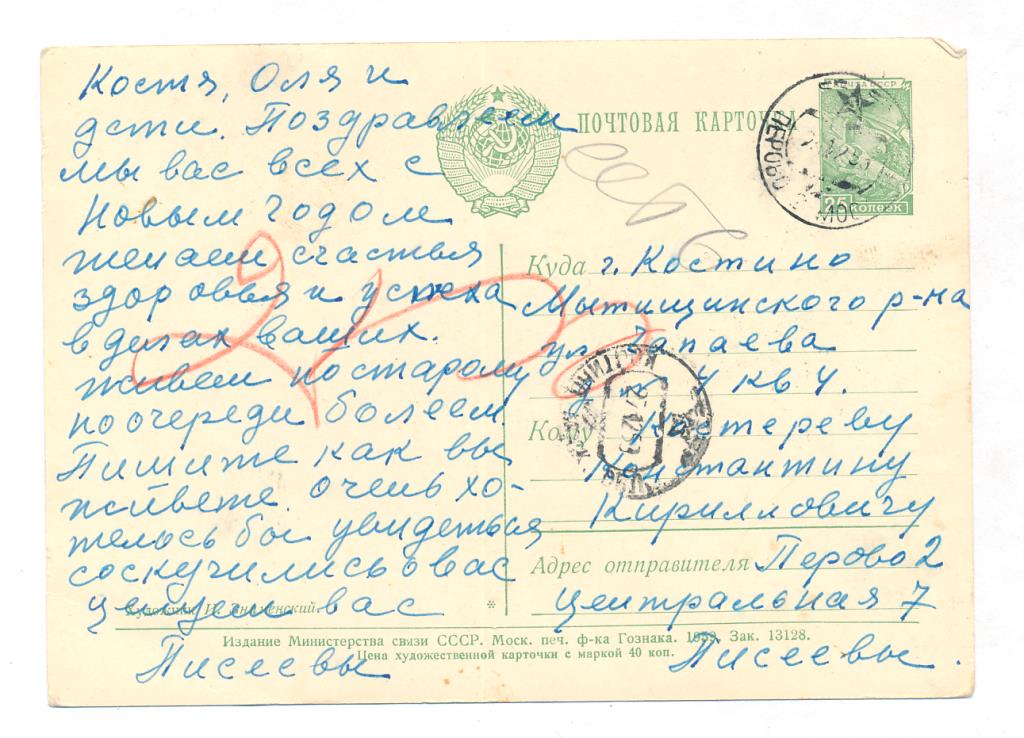 Костя, Оля и
дети. Поздравляем
мы вас всех с
Новым годом
желаем счастья
здоровья и успеха
в делах ваших.
живем по старому
по очереди болеем.
Пишите как вы
живете. очень хо-
телось бы увидеться
соскучились о вас
целуем вас
Писеевы
ПОЧТОВАЯ КАРТОЧКА
ПОЧТА СССР
25 КОПЕЕК
ПЕРОВО
МОС
Куда г. Костино
Мытищинского р-на
ул. Чапаева
4 кв 4.
КОСТИНО
27 12 5
Кому Костереву
Константину
Кирилловичу
Адрес отправителя Перово 2
Центральная 7
Писеевы.
Художник И. Знаменский
*
Издание Министерства связи СССР. Моск. печ. ф-ка Гознака. 1959. Зак. 13128.
Цена художественной карточки с маркой 40 коп.